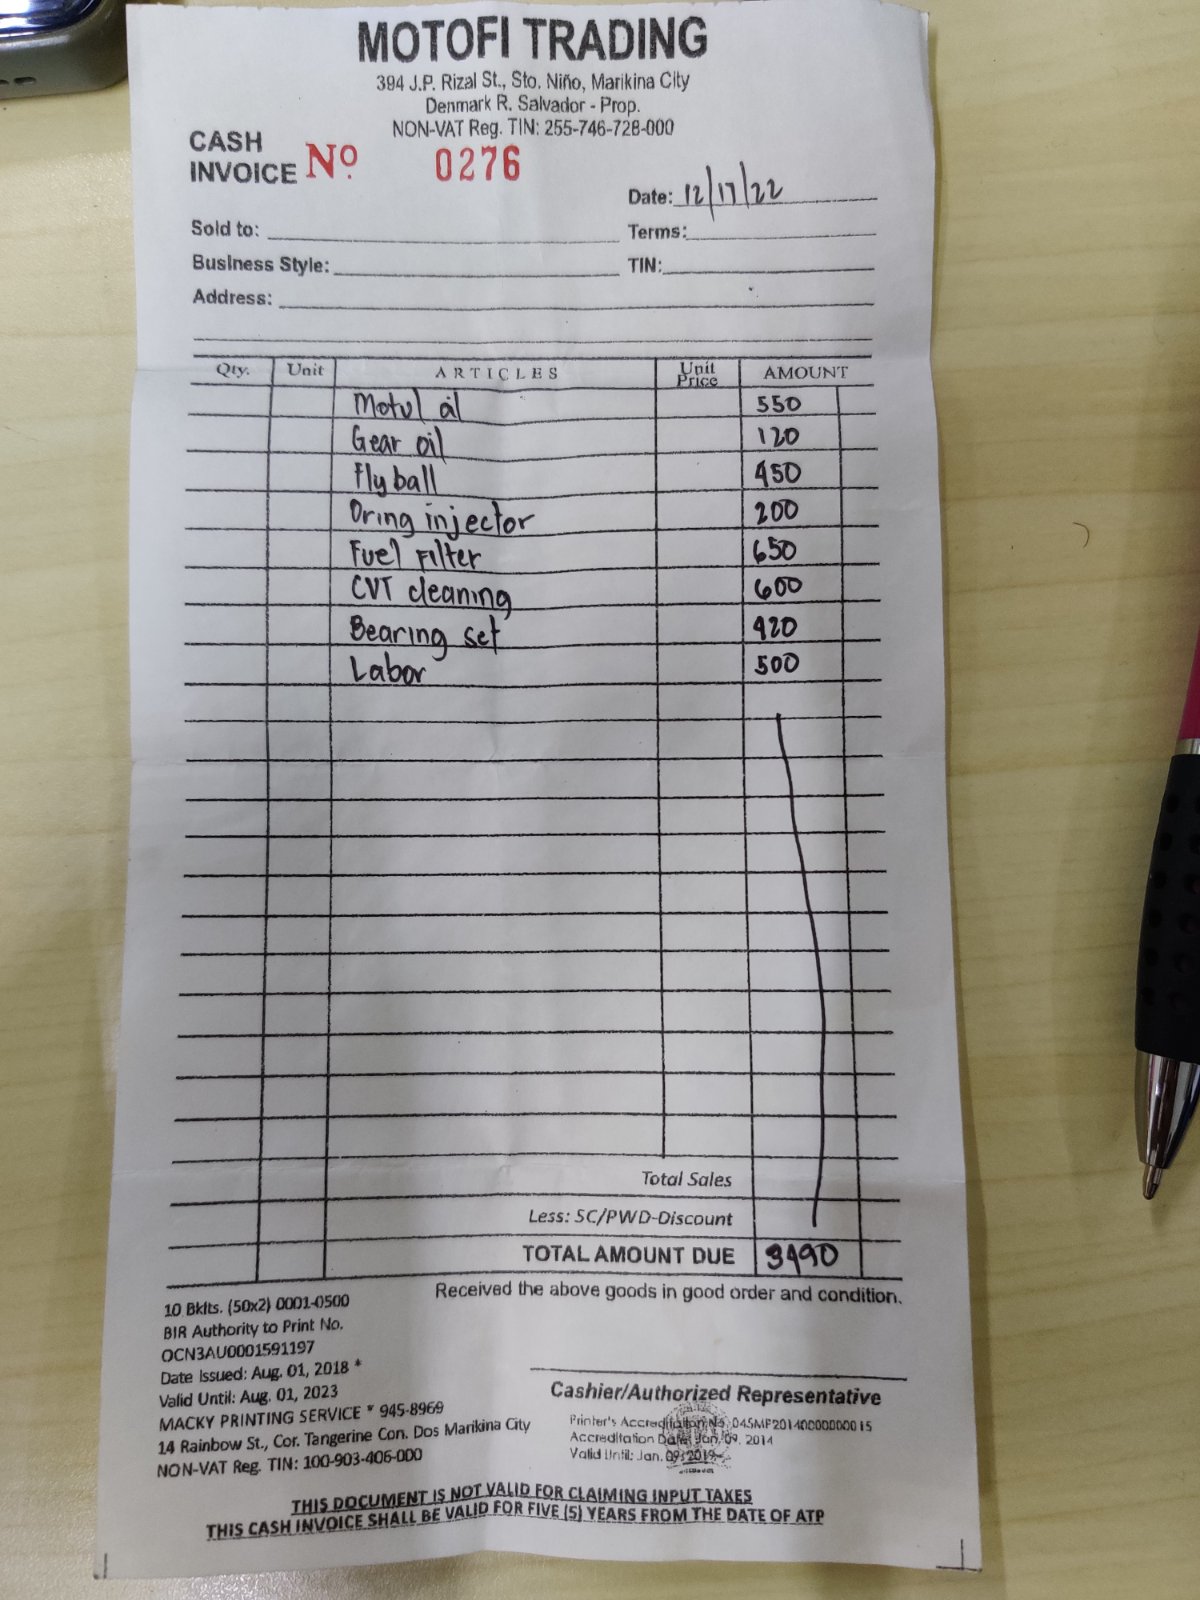 MOTOFI TRADING
394 J.P. Rizal St., Sto. Niño, Marikina City
Denmark R. Salvador - Prop.
NON-VAT Reg. TIN: 255-746-728-000
CASH INVOICE Nº. 0276
Date: 12/17/22
Sold to: Terms:
Business Style: TIN:
Address:
Qty. Unit ARTICLES Unit Price AMOUNT
Motul oil 550
Gear oil 120
Flyball 450
Oring injector 200
Fuel Filter 650
CVT cleaning 600
Bearing set 420
Labor 500
Total Sales
Less: SC/PWD-Discount
TOTAL AMOUNT DUE 3490
Received the above goods in good order and condition.
10 Bklts. (50x2) 0001-0500
BIR Authority to Print No.
OCN3AU0001591197
Date Issued: Aug. 01, 2018 *
Valid Until: Aug. 01, 2023
MACKY PRINTING SERVICE * 945-8969
14 Rainbow St., Cor. Tangerine Con. Dos Marikina City
NON-VAT Reg. TIN: 100-903-406-000
Cashier/Authorized Representative
Printer's Accreditation No. 045MP20140000000015
Accreditation Date: Jan. 09, 2014
Valid Until: Jan. 09, 2019
THIS DOCUMENT IS NOT VALID FOR CLAIMING INPUT TAXES
THIS CASH INVOICE SHALL BE VALID FOR FIVE (5) YEARS FROM THE DATE OF ATP